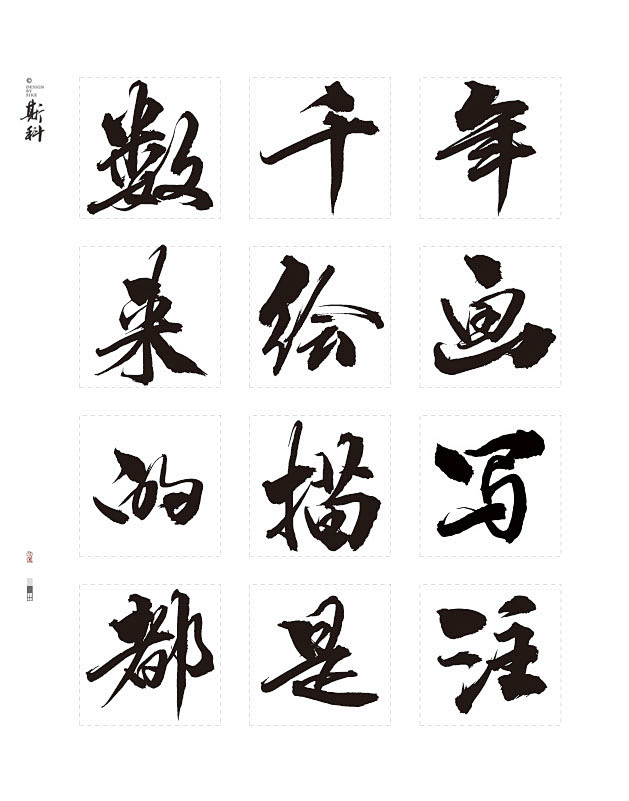 ©
DESIGN
BY
SIKE
斯科
数千年
来绘画
的描写
都是注